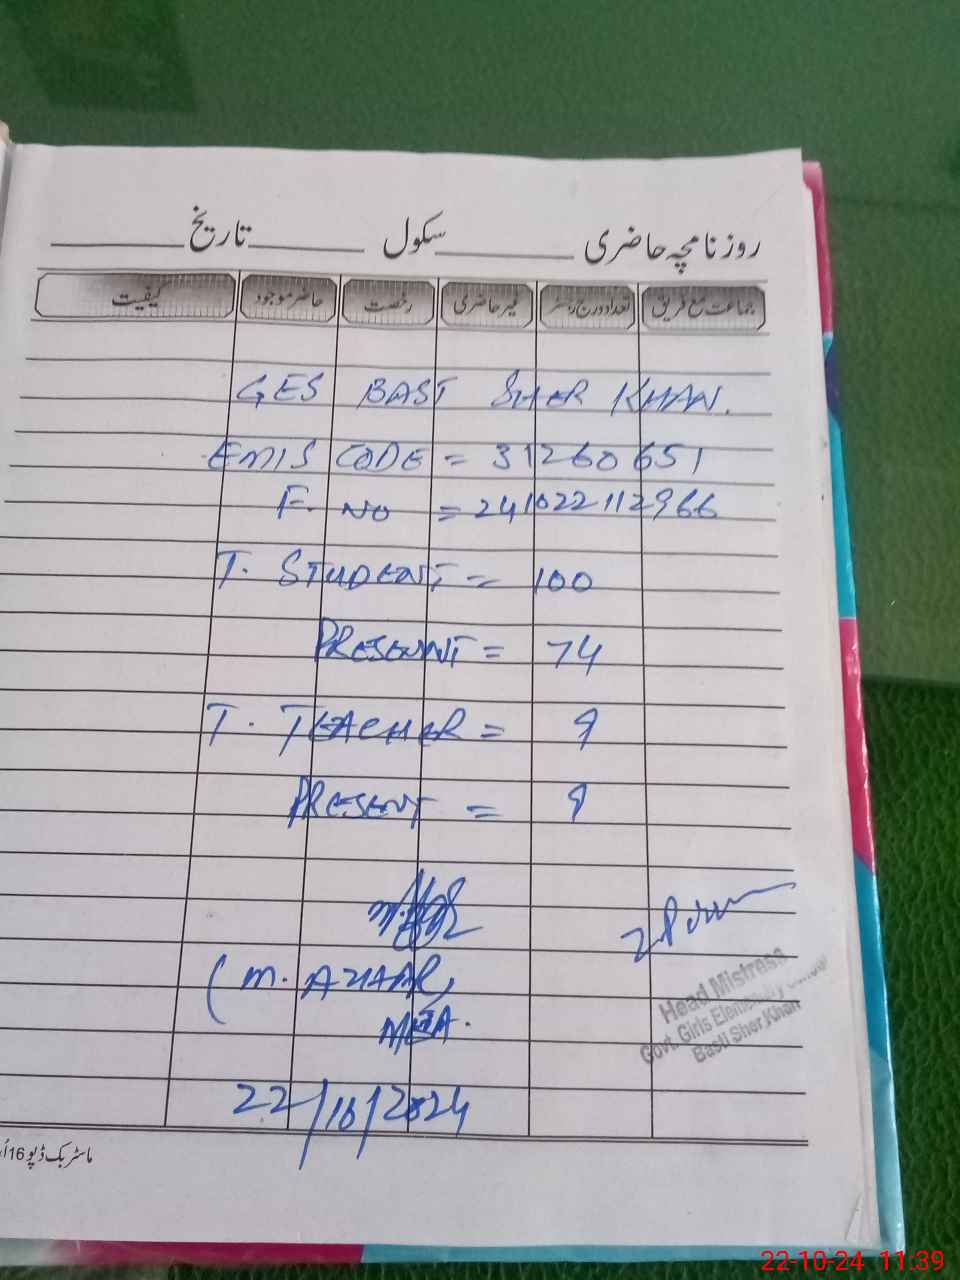 روزنامچہ حاضری ____ سکول ____ تاریخ ____
جماعت مع فریق تعداد درج رجسٹر غیر حاضری رخصت حاضر موجود کیفیت
GES BAST SHER KHAN.
EMIS CODE = 31260651
F. NO = 241022112966
T. STUDENT = 100
PRESENNT = 74
T. TEACHER = 9
PRESENT = 9
(M. AZHAR)
MEA.
Head Mistress
Govt. Girls Elementary School
Basti Sher Khan
22/10/2024
ماسٹر بک ڈپو 16
22-10-24 11:39